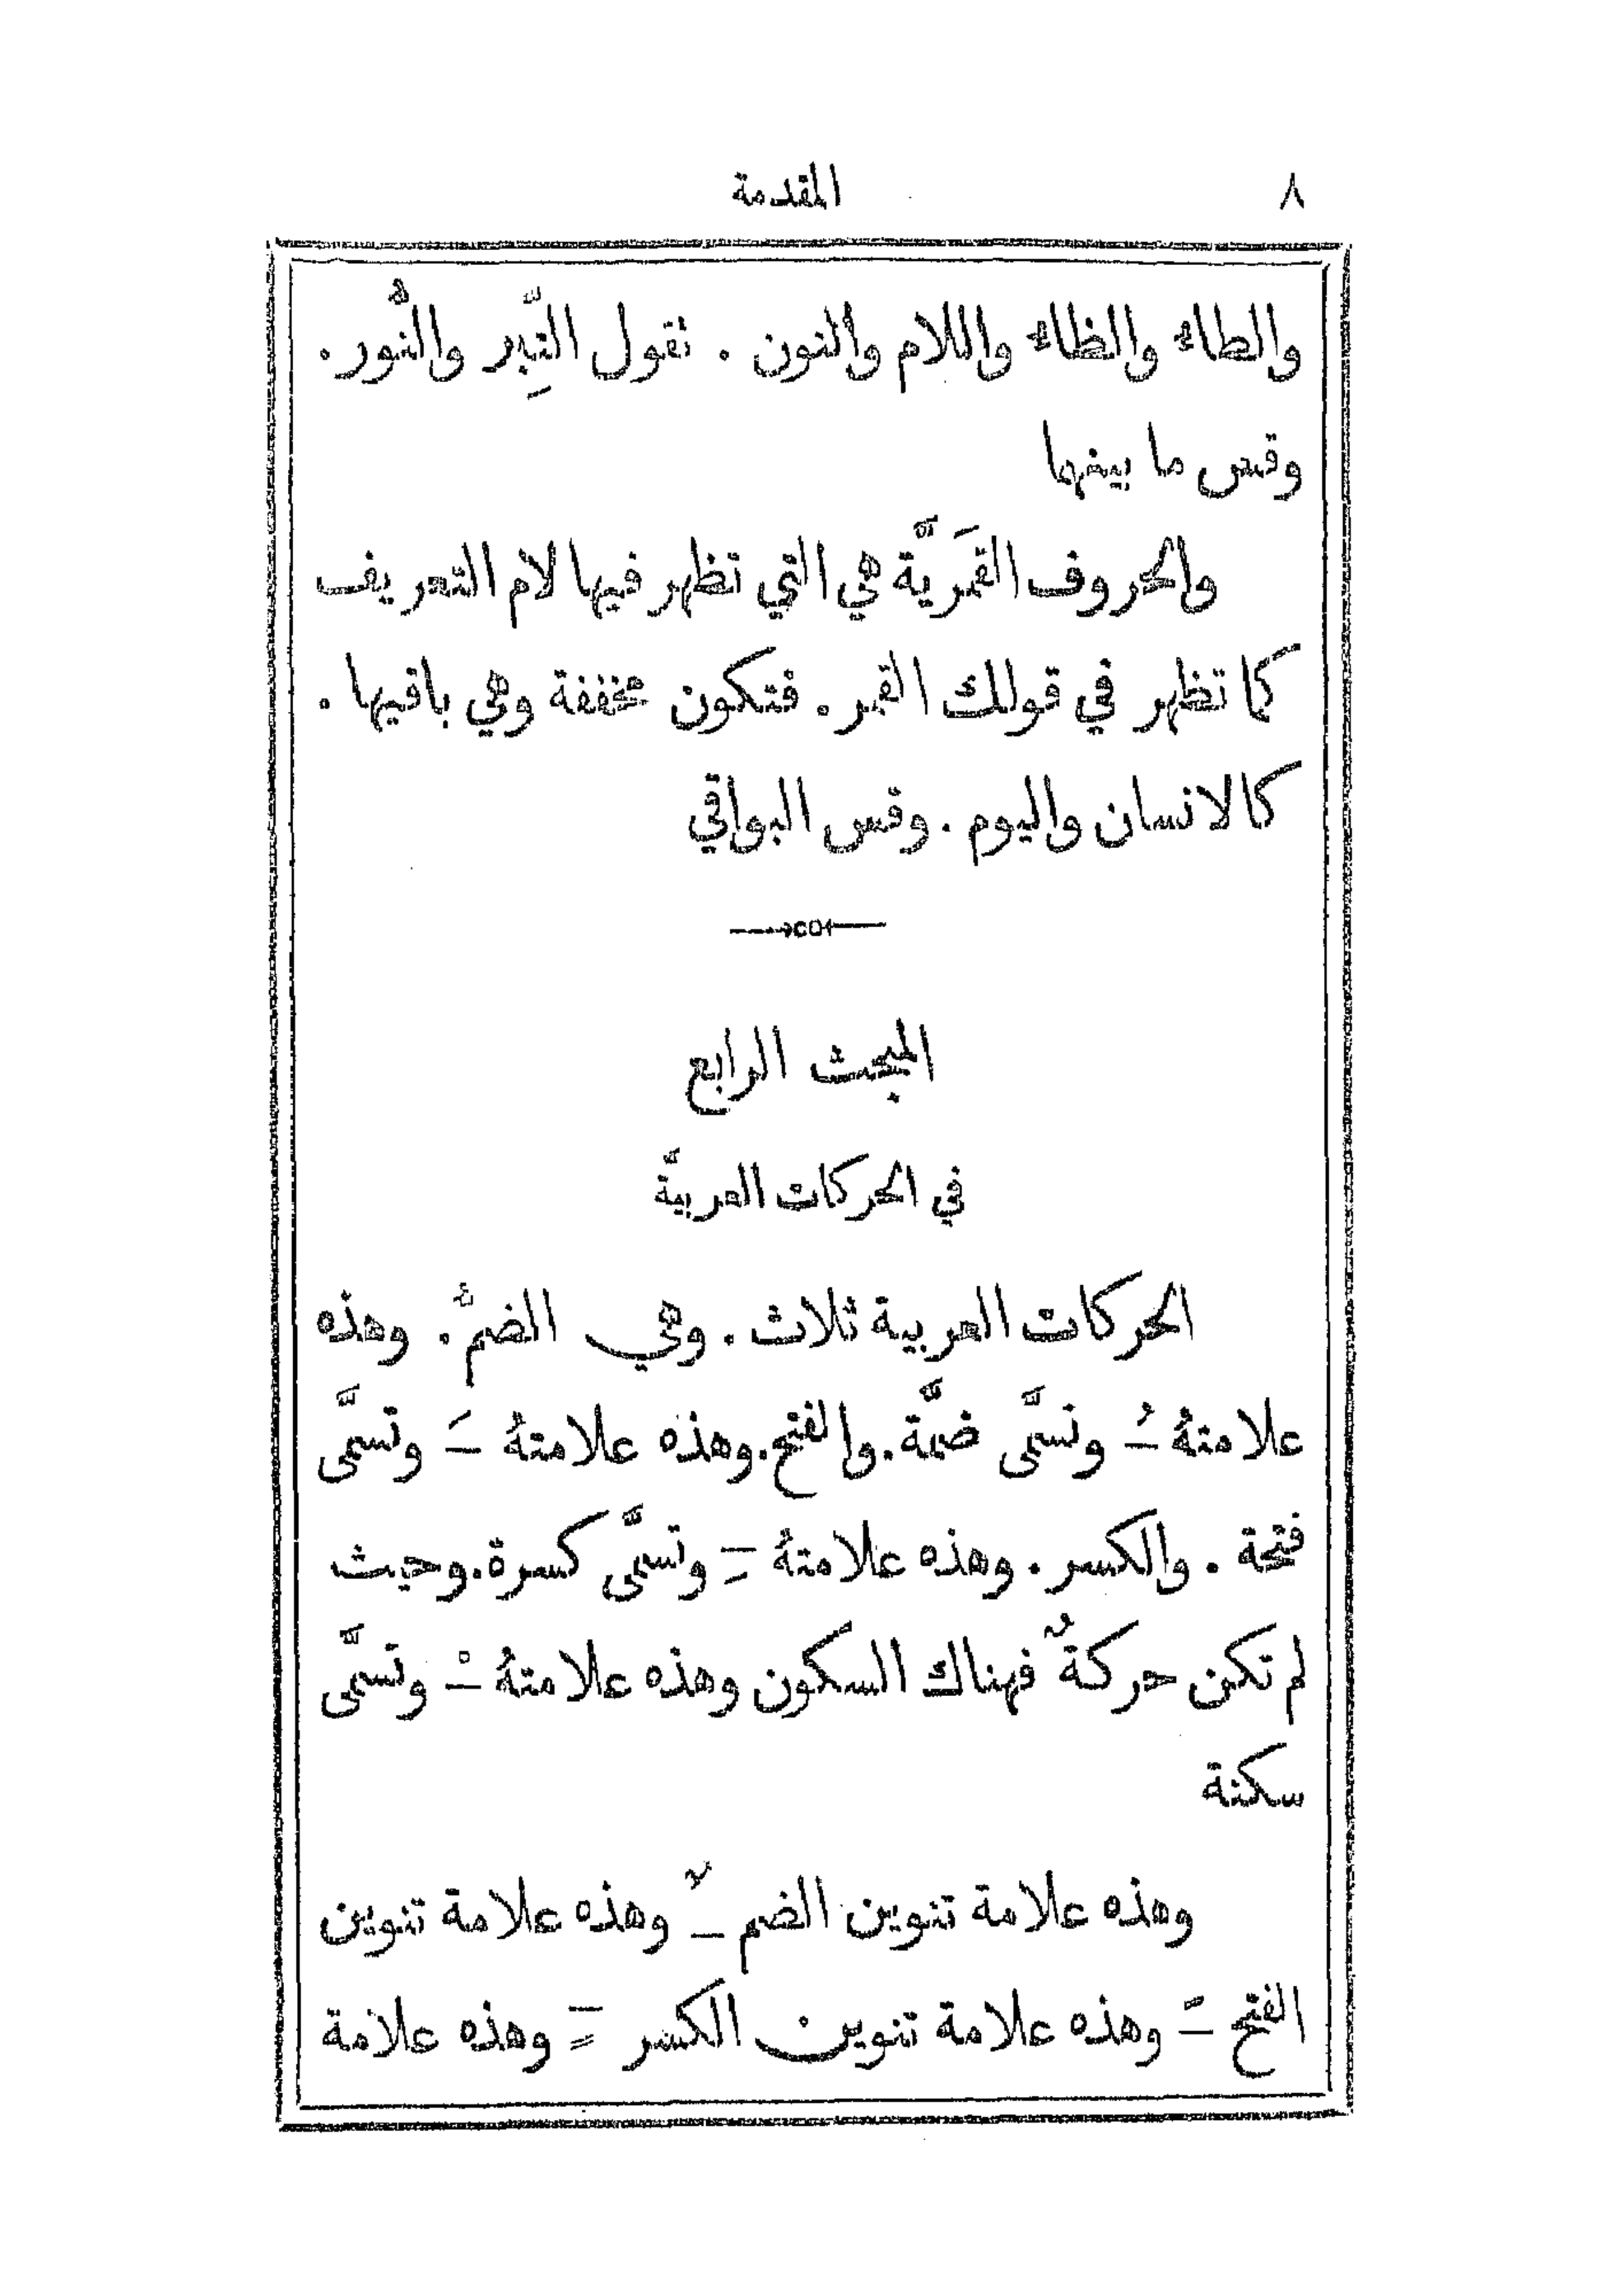 ٨ المقدمة
والطاء والظاء واللام والنون . تقول التِّبر والنُّور.
وقس ما بينهما
والحروف القمَريَّة هي التي تظهر فيها لام التعريف
كما تظهر في قولك القمر. فتكون مخففة وهي باقيها .
كالانسان واليوم . وقس البواقي
المبحث الرابع
في الحركات العربيَّة
الحركات العربية ثلاث . وهي الضمُّ. وهذه
علامتهُ ـُ وتسَّمى ضمَّة. والفتح. وهذه علامتهُ ـَ وتسمَّى
فتحة . والكسر . وهذه علامتهُ ـِ وتسمَّى كسرة. وحيث
لم تكن حركةٌ فهناك السكون وهذه علامتهُ ـْ وتسمَّى
سكنة
وهذه علامة تنوين الضم ـٌ وهذه علامة تنوين
الفتح ـً وهذه علامة تنوين الكسر ـٍ وهذه علامة